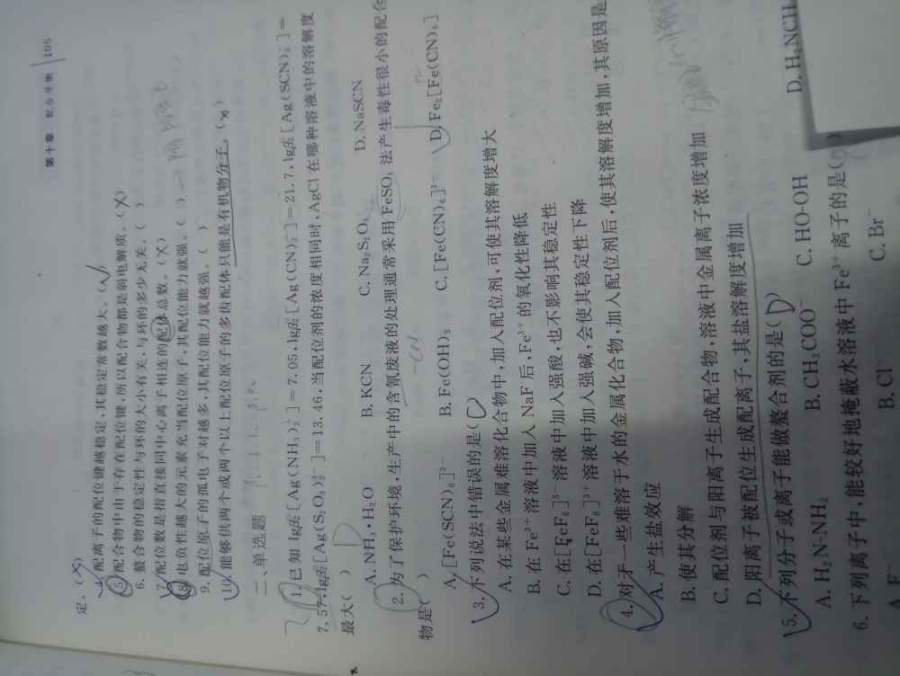 第十章 配合平衡 105
定。(×)
4. 配离子的配位键越稳定,其稳定常数越大。(√)
5. 配合物中由于存在配位键,所以配合物都是弱电解质。(×)
6. 螯合物的稳定性与环的大小有关,与环的多少无关。( )
7. 配位数是指直接同中心离子相连的配体总数。(×)
8. 电负性越大的元素充当配位原子,其配位能力就强。( )
9. 配位原子的孤电子对越多,其配位能力就越强。( )
10. 能够供两个或两个以上配位原子的多齿配体只能是有机物分子。(×)
二、单选题
1. 已知 lgβ₂[Ag(NH₃)₂⁺]=7.05,lgβ₂[Ag(CN)₂⁻]=21.7,lgβ₂[Ag(SCN)₂⁻]=
7.57,lgβ₂[Ag(S₂O₃)₂³⁻]=13.46,当配位剂的浓度相同时,AgCl 在哪种溶液中的溶解度
最大( )
A. NH₃·H₂O B. KCN C. Na₂S₂O₃ D. NaSCN
2. 为了保护环境,生产中的含氰废液的处理通常采用 FeSO₄ 法产生毒性很小的配合
物是( )
-CN
A. [Fe(SCN)₆]³⁻ B. Fe(OH)₃ C. [Fe(CN)₆]³⁻ D. Fe₂[Fe(CN)₆]
3. 下列说法中错误的是(D
A. 在某些金属难溶化合物中,加入配位剂,可使其溶解度增大
B. 在 Fe³⁺ 溶液中加入 NaF 后,Fe³⁺ 的氧化性降低
C. 在[FeF₆]³⁻ 溶液中加入强酸,也不影响其稳定性
D. 在[FeF₆]³⁻ 溶液中加入强碱,会使其稳定性下降
4. 对于一些难溶于水的金属化合物,加入配位剂后,使其溶解度增加,其原因是
A. 产生盐效应
B. 使其分解
C. 配位剂与阳离子生成配合物,溶液中金属离子浓度增加
D. 阳离子被配位生成配离子,其盐溶解度增加
5. 下列分子或离子能做螯合剂的是(D)
A. H₂N-NH₂ B. CH₃COO⁻ C. HO-OH D. H₂NCH
6. 下列离子中,能较好地掩蔽水溶液中 Fe³⁺ 离子的是(
A. F⁻ B. Cl⁻ C. Br⁻